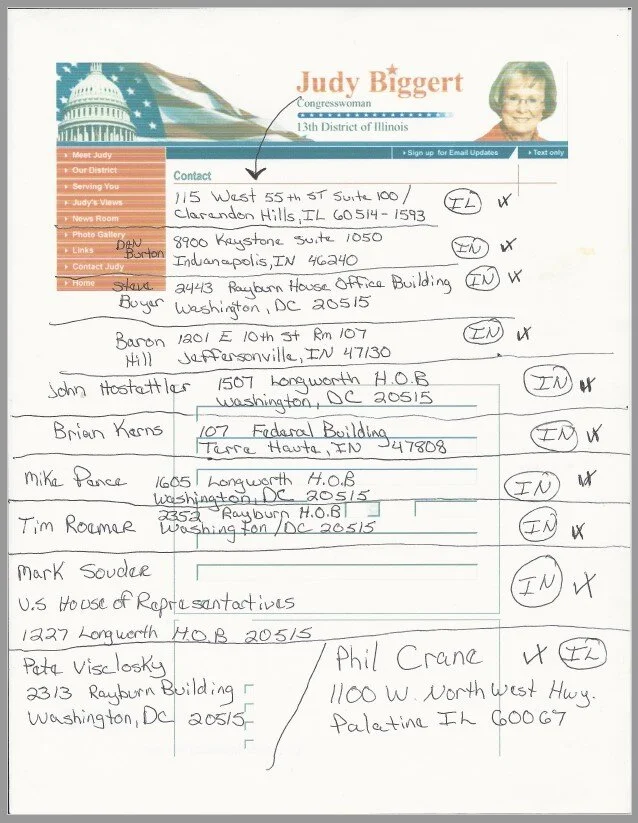 Judy Biggert
Congresswoman
13th District of Illinois
Sign up for Email Updates
Text only
Meet Judy
Our District
Serving You
Judy's Views
News Room
Photo Gallery
Links
Contact Judy
Home
Contact
115 West 55th ST Suite 100/ IL
Clarendon Hills, IL 60514-1593
Dan Burton 8900 Keystone Suite 1050 IN
Indianapolis, IN 46240
Steve Buyer 2443 Rayburn House Office Building IN
Washington, DC 20515
Baron Hill 1201 E 10th St Rm 107 IN
Jeffersonville, IN 47130
John Hostettler 1507 Longworth H.O.B IN
Washington, DC 20515
Brian Kerns 107 Federal Building IN
Terre Haute, IN 47808
Mike Pence 1605 Longworth H.O.B IN
Washington, DC 20515
Tim Roemer 2352 Rayburn H.O.B IN
Washington/DC 20515
Mark Souder IN
U.S House of Representactives
1227 Longworth H.O.B 20515
Pete Visclosky
2313 Rayburn Building
Washington, DC 20515
Phil Crane IL
1100 W. North West Hwy.
Palatine IL 60067